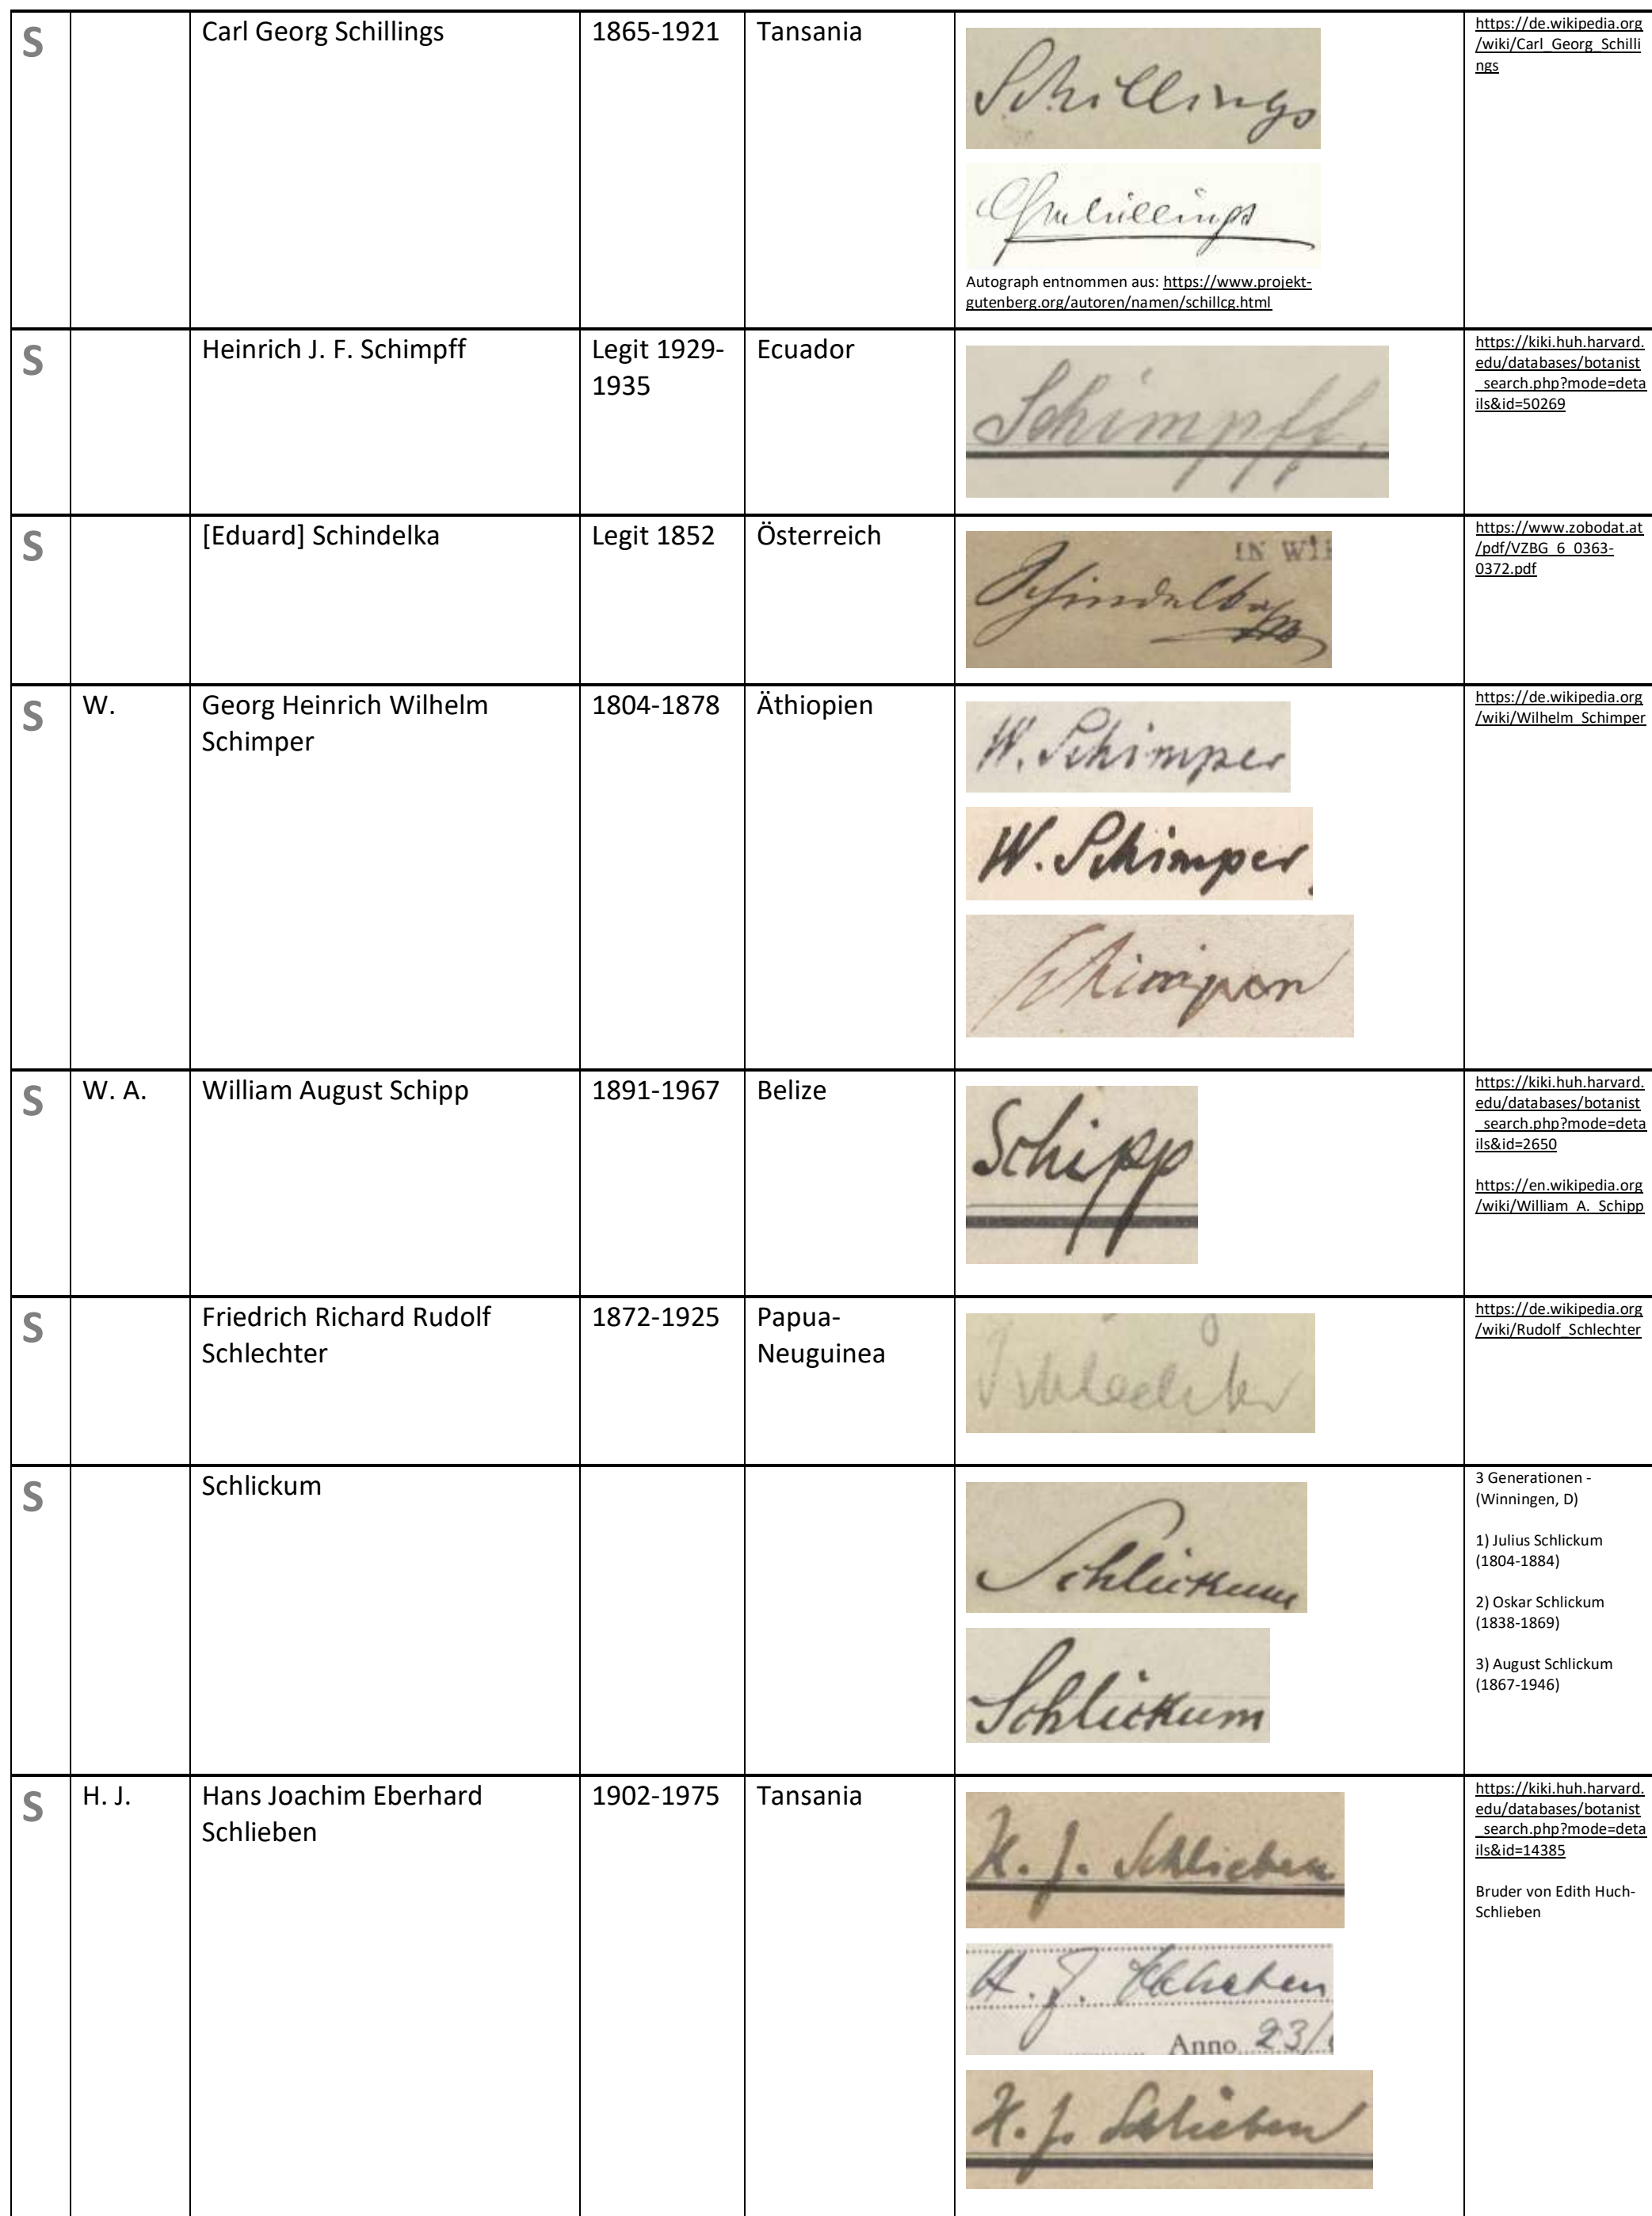 S
Carl Georg Schillings
1865-1921
Tansania
Schillings
Autograph entnommen aus: https://www.projekt-
gutenberg.org/autoren/namen/schillcg.html
https://de.wikipedia.org
/wiki/Carl_Georg_Schilli
ngs
S
Heinrich J. F. Schimpff
Legit 1929-
1935
Ecuador
Schimpff.
https://kiki.huh.harvard.
edu/databases/botanist
_search.php?mode=deta
ils&id=50269
S
[Eduard] Schindelka
Legit 1852
Österreich
IN WI
Schindelka
https://www.zobodat.at
/pdf/VZBG_6_0363-
0372.pdf
S
W.
Georg Heinrich Wilhelm
Schimper
1804-1878
Äthiopien
W. Schimper
W. Schimper
Schimper
https://de.wikipedia.org
/wiki/Wilhelm_Schimper
S
W. A.
William August Schipp
1891-1967
Belize
Schipp
https://kiki.huh.harvard.
edu/databases/botanist
_search.php?mode=deta
ils&id=2650
https://en.wikipedia.org
/wiki/William_A._Schipp
S
Friedrich Richard Rudolf
Schlechter
1872-1925
Papua-
Neuguinea
Schlechter
https://de.wikipedia.org
/wiki/Rudolf_Schlechter
S
Schlickum
Schlickum
Schlickum
3 Generationen -
(Winningen, D)
1) Julius Schlickum
(1804-1884)
2) Oskar Schlickum
(1838-1869)
3) August Schlickum
(1867-1946)
S
H. J.
Hans Joachim Eberhard
Schlieben
1902-1975
Tansania
H. J. Schlieben
H. J. Schlieben
Anno 23/
H. J. Schlieben
https://kiki.huh.harvard.
edu/databases/botanist
_search.php?mode=deta
ils&id=14385
Bruder von Edith Huch-
Schlieben